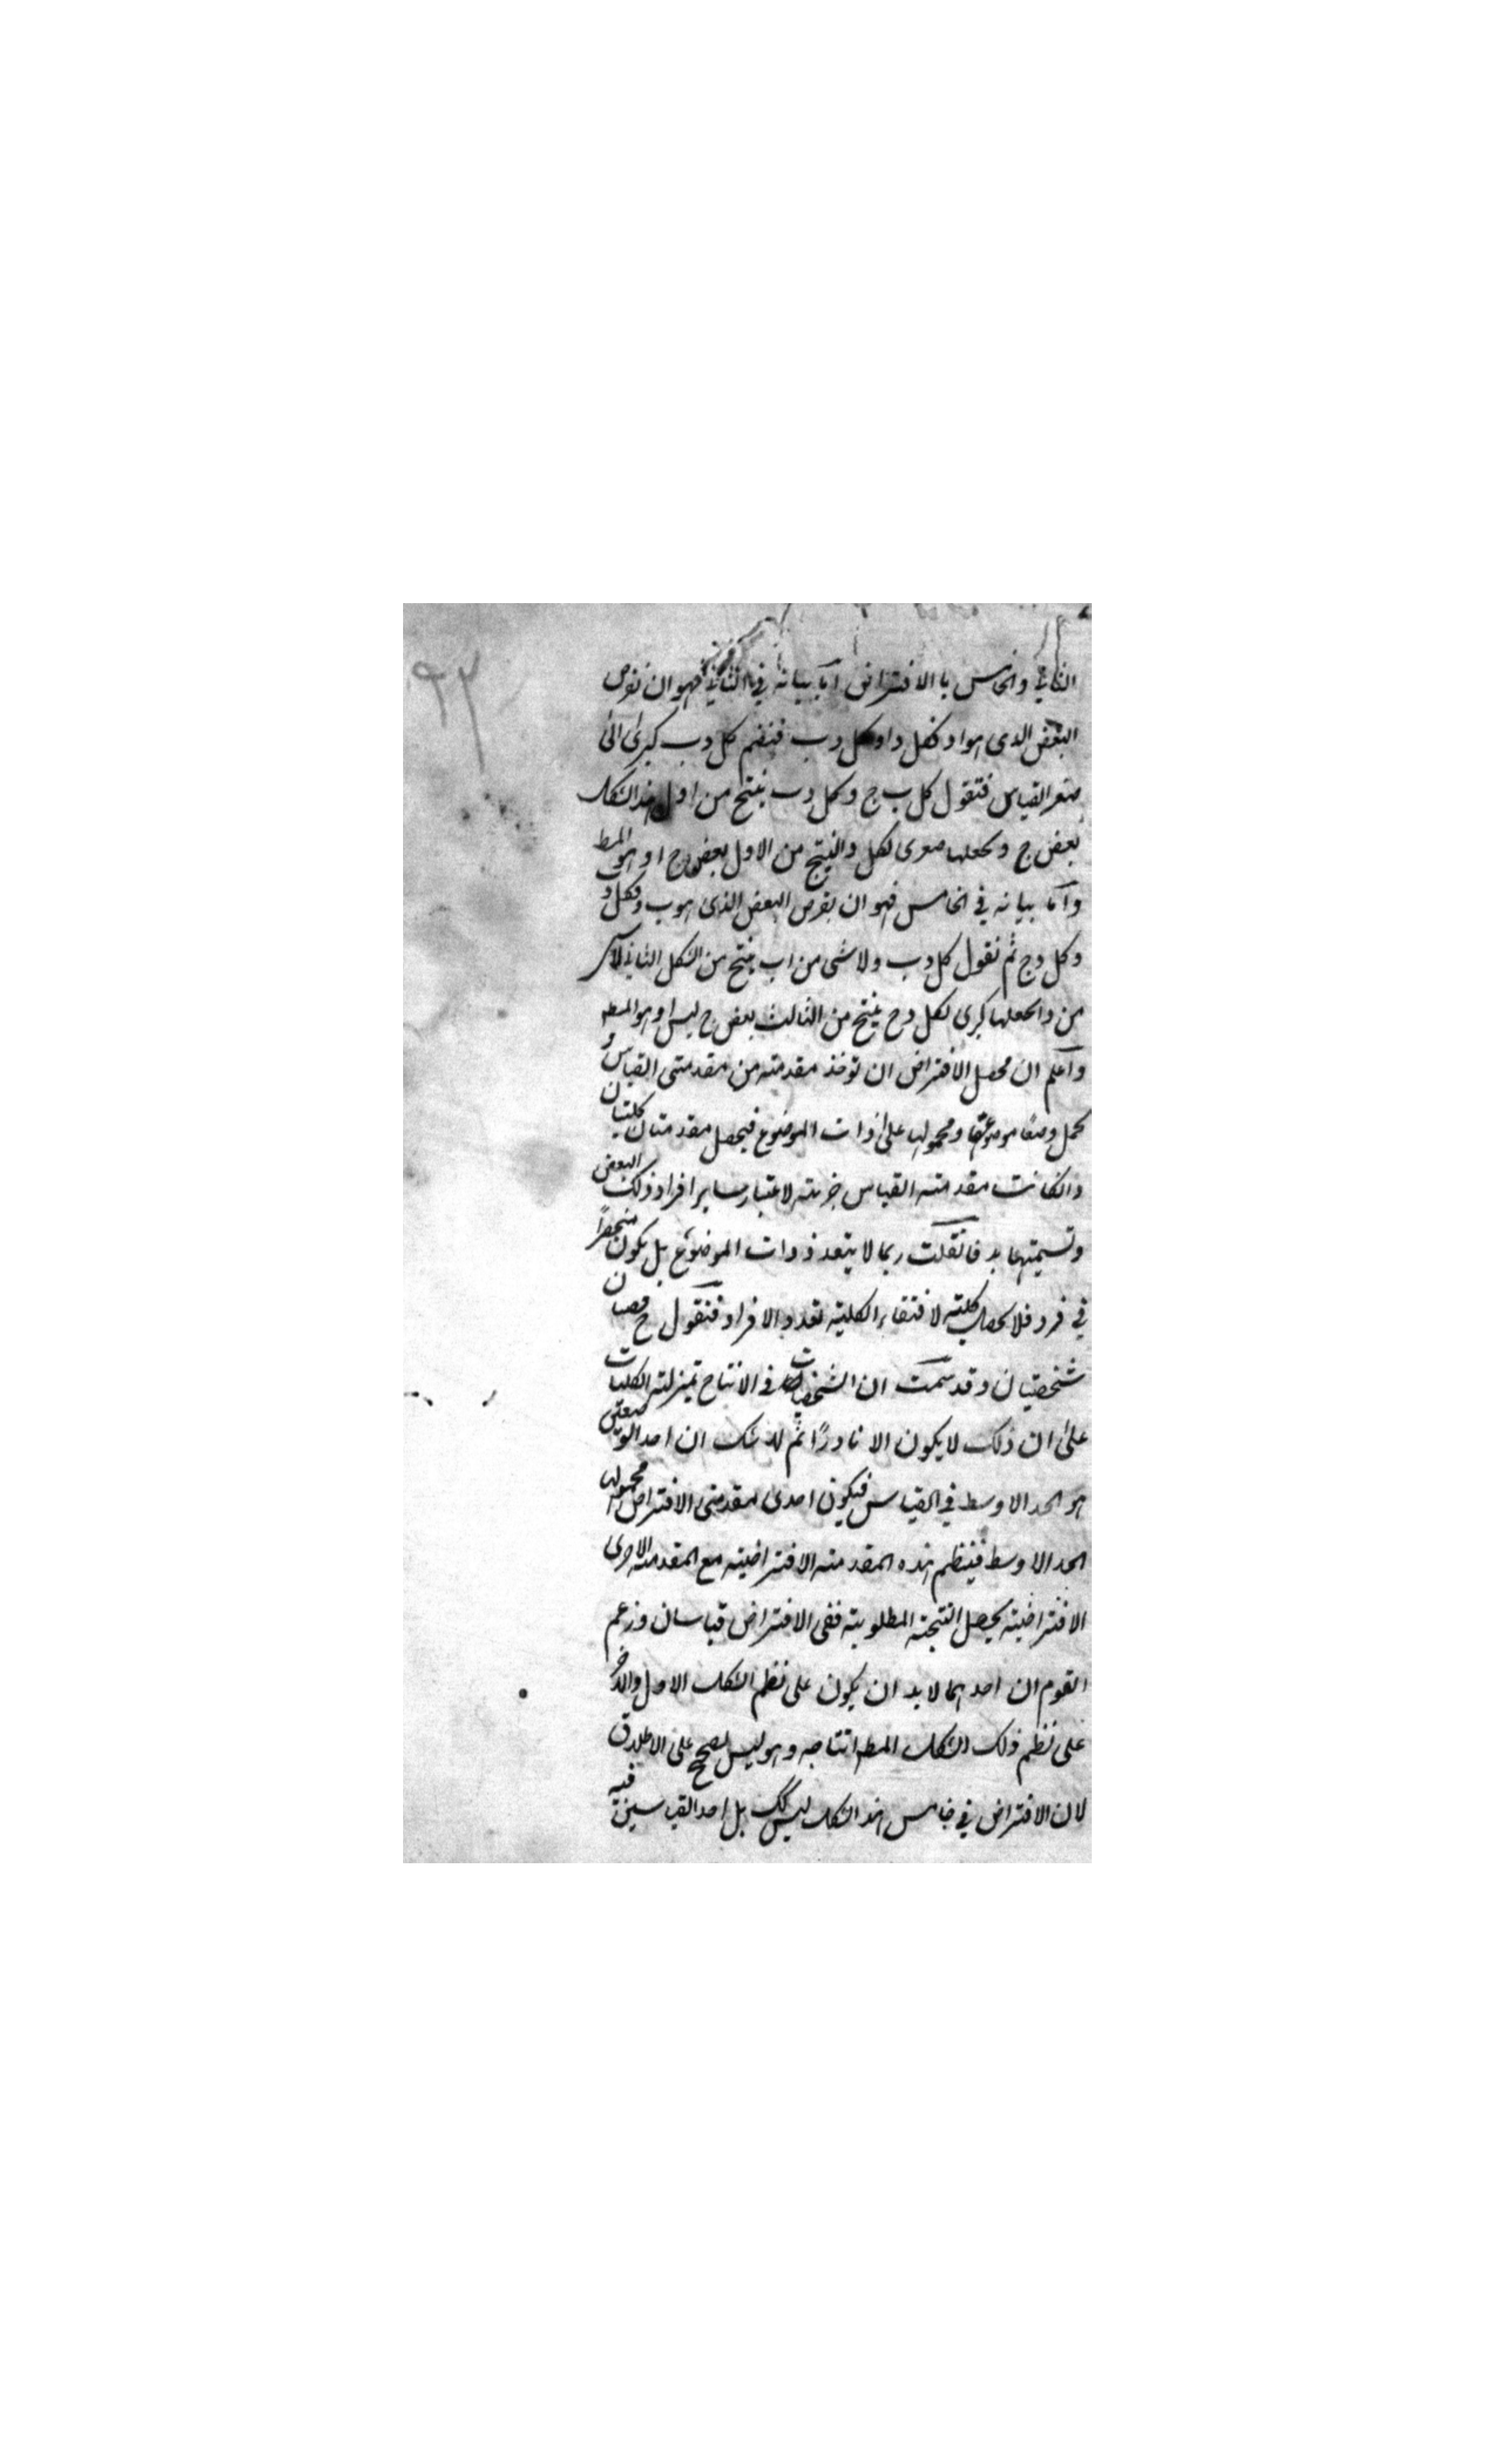 الثاني والخامس با الافتراض اما بيانه في الثاني فهو ان نفرض
البعض الذي هو ا د فكل د ا وكل د ب فنضم كل د ب كبرى الى
صغر القياس فنقول كل ب ج وكل د ب ينتج من اول هذا الشكل
بعض ج د نجعلها صغرى لكل د ا لينتج من الاول بعض ج ا وهو المط
واما بيانه في الخامس فهو ان نفرض البعض الذي هو ب د فكل د
وكل د ج ثم نقول كل د ب ولا شي من ا ب ينتج من الشكل الثاني لا شي
من د ا نجعلها كبرى لكل د ج ينتج من الثالث بعض ج ليس ا وهو المط
واعلم ان محصل الافتراض ان توخذ مقدمته من مقدمتي القياس و
يحمل وصفا موضوعها ومحمولها على ذات الموضوع فيحصل مقدمتان كليتان
وانكانت مقدمته القياس جزئية لاعتبار ساير افراد ذلك البعض
وتسميتها بد فانقلت ربما لا يتعدد ذات الموضوع بل يكون منحصرا
في فرد فلا يحصل كلية لاقتضاء الكلية تعدد الافراد فنقول ح
شخصيتان وقد سمعت ان الشخصيات في الانتاج بمنزلة الكليات
على ان ذلك لا يكون الا نادرًا ثم لا شك ان احد الوصفين
هو الحد الاوسط في القياس فيكون احدى مقدمتي الافتراض محمولها
الحد الاوسط فينظم هذه المقدمة الافتراضية مع المقدمة الاخرى
الافتراضية يحصل النتيجة المطلوبة ففي الافتراض قياسان وزعم
القوم ان احدهما لا بد ان يكون على نظم الشكل الاول والاخر
على نظم ذلك الشكل المط انتاجه وهو ليس بصحيح على الاطلاق
لان الافتراض في خامس هذا الشكل ليس كك بل احد القياسين فيه